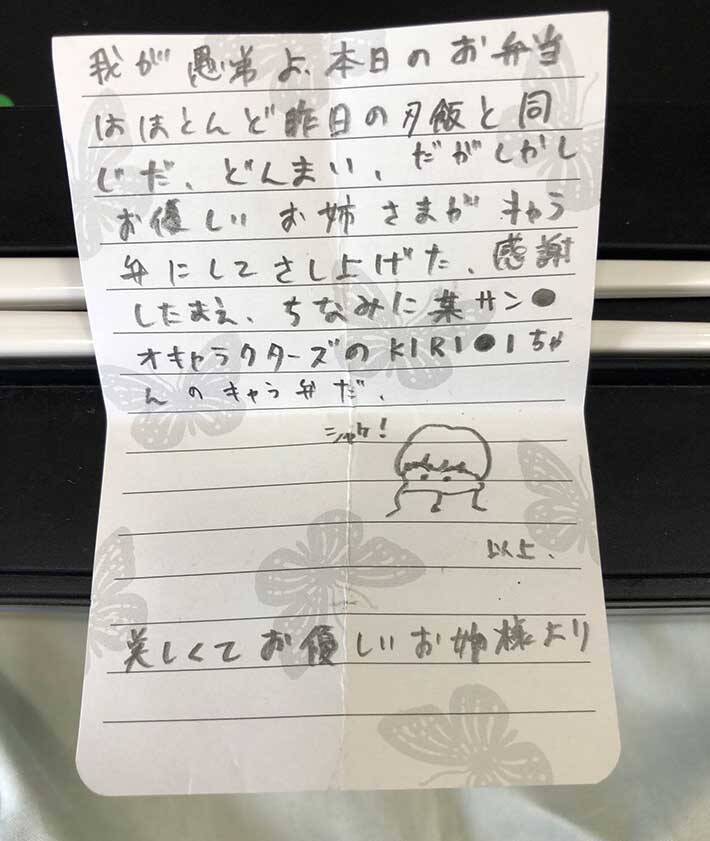 我が愚弟よ、本日のお弁当
はほとんど昨日の夕飯と同
じだ、どんまい、だがしかし
お優しいお姉さまがキャラ
弁にしてさし上げた、感謝
したまえ、ちなみに某サン●
オキャラクターズのKIRI●Iちゃ
んのキャラ弁だ、
シャケ!
以上、
美しくてお優しいお姉様より